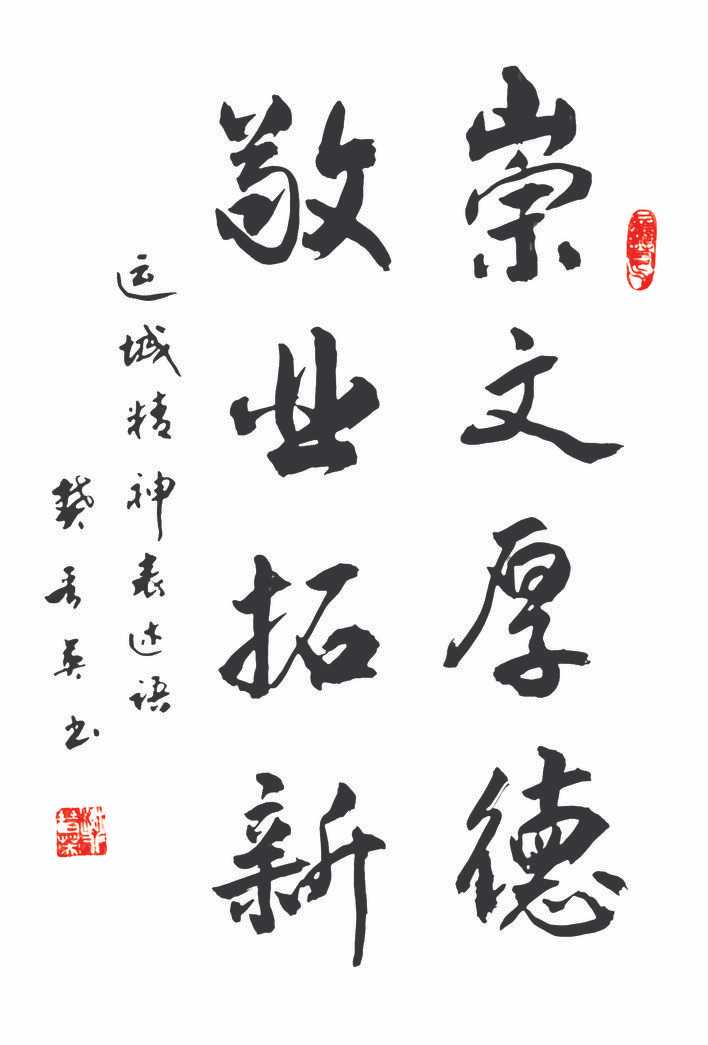 崇文厚德
敬业拓新
运城精神表述语
樊秀英书